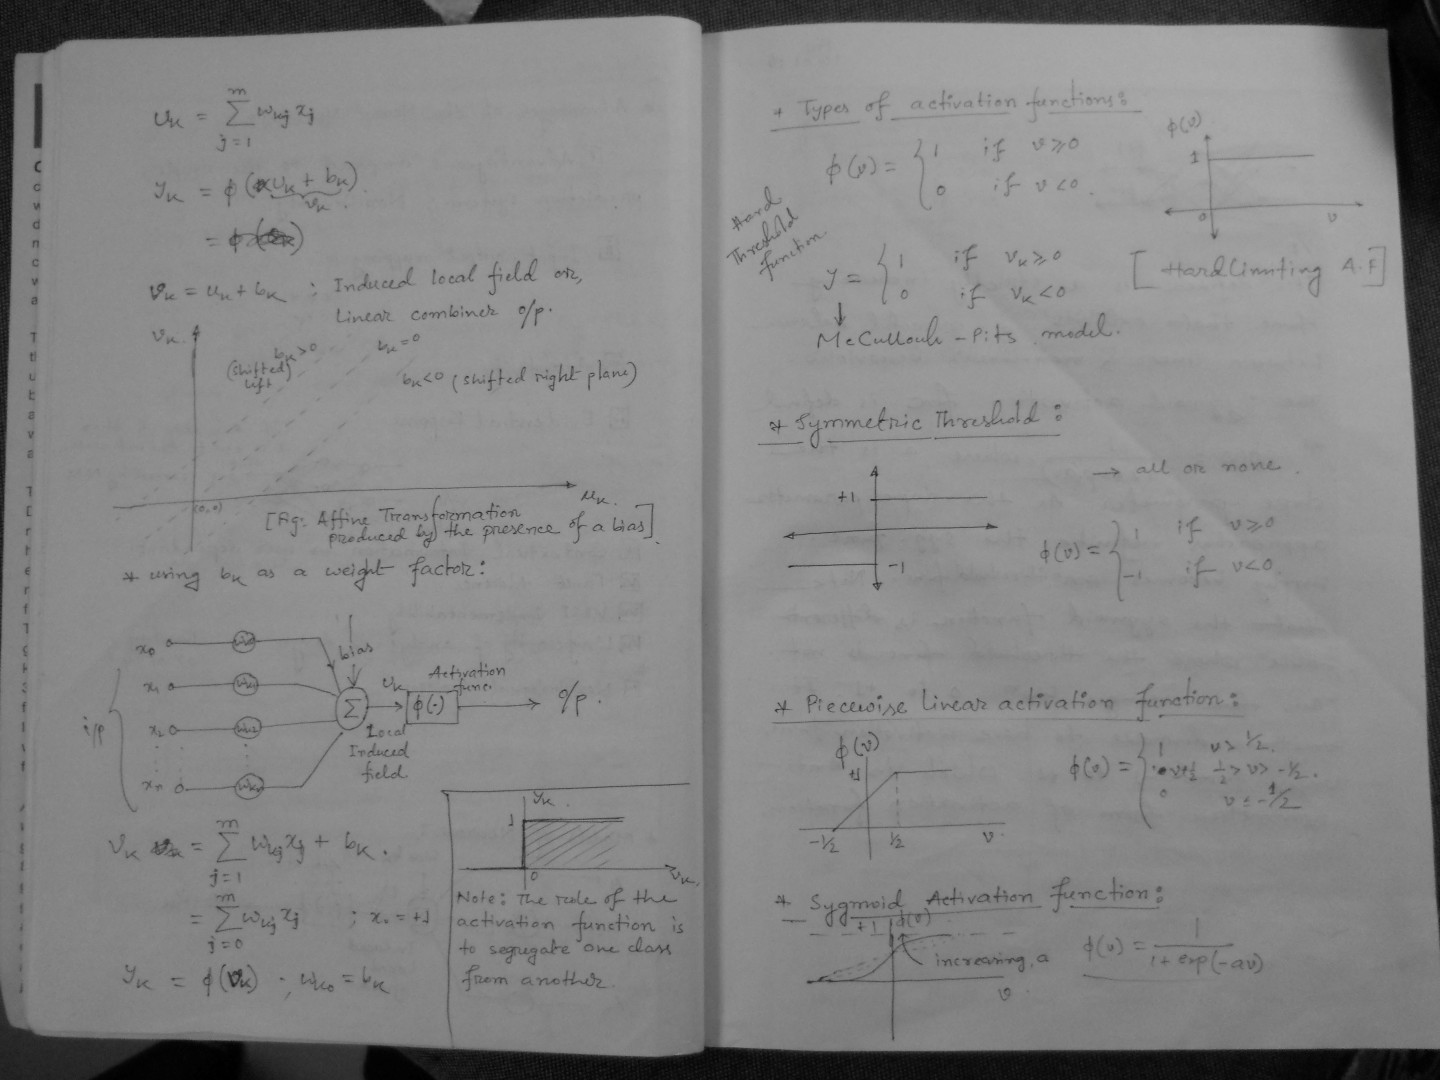 u_k = Σ_{j=1}^{m} w_kj x_j
y_k = φ(u_k + b_k)
v_k
= φ(
v_k = u_k + b_k ; Induced local field or,
Linear combiner o/p.
v_k
b_k>0
(shifted left)
b_k=0
b_k<0 (shifted right plane)
(0,0)
u_k
[Fig: Affine Transformation
produced by the presence of a bias]
* using b_k as a weight factor:
x_0
x_1
x_2
i/p
bias
Σ
u_k
Activation
func.
φ(·)
o/p.
Local
Induced
field
v_k = Σ_{j=1}^{m} w_kj x_j + b_k.
= Σ_{j=0}^{m} w_kj x_j ; x_0 = +1
y_k = φ(v_k) ; w_k0 = b_k
y_k
1
0
v_k
Note: The role of the
activation function is
to segregate one class
from another.
* Types of activation functions:
φ(v) = { 1 if v≥0
0 if v<0.
φ(v)
1
0
v
Hard
Threshold
function.
y = { 1 if v_k≥0
0 if v_k<0
[Hard Limiting A.F]
McCullouh - Pits model.
* Symmetric Threshold:
+1
-1
→ all or none.
φ(v) = { 1 if v≥0
-1 if v<0.
* Piecewise Linear activation function:
φ(v)
+1
-1/2
1/2
v
φ(v) = { 1 v≥1/2.
v+1/2 1/2>v>-1/2.
0 v≤-1/2
* Sygmoid Activation function:
+1
φ(v)
increasing, a
v
φ(v) = 1/(1+exp(-av))